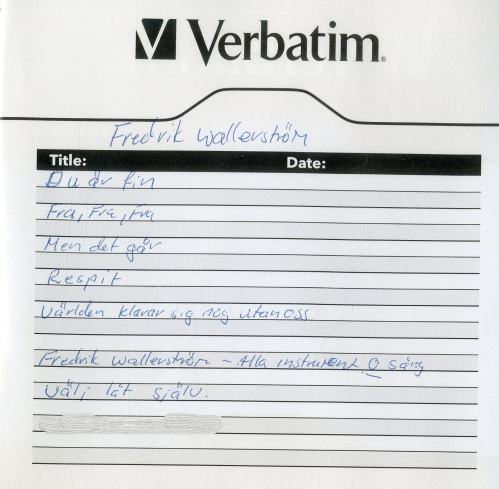 Verbatim.
Fredrik Wallerström
Title: Date:
Du är fin
Fra, Fra, Fra
Men det går
Respit
världen klarar sig nog utan oss
Fredrik Wallerström - Alla instrument O sång
välj låt själv.